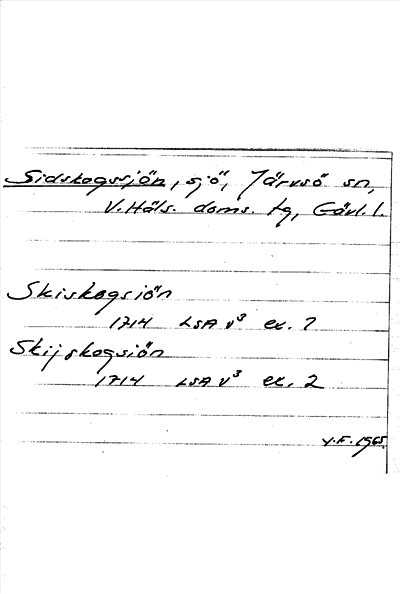 Sidskogssjön, sjö, Järvsö sn,
V. Häls. doms. tg, Gävl. l.
Skiskogsiön
1714 LSA V³ ex. 1
Skijskogsiön
1714 LSA V³ ex. 2
Y.F. 1965